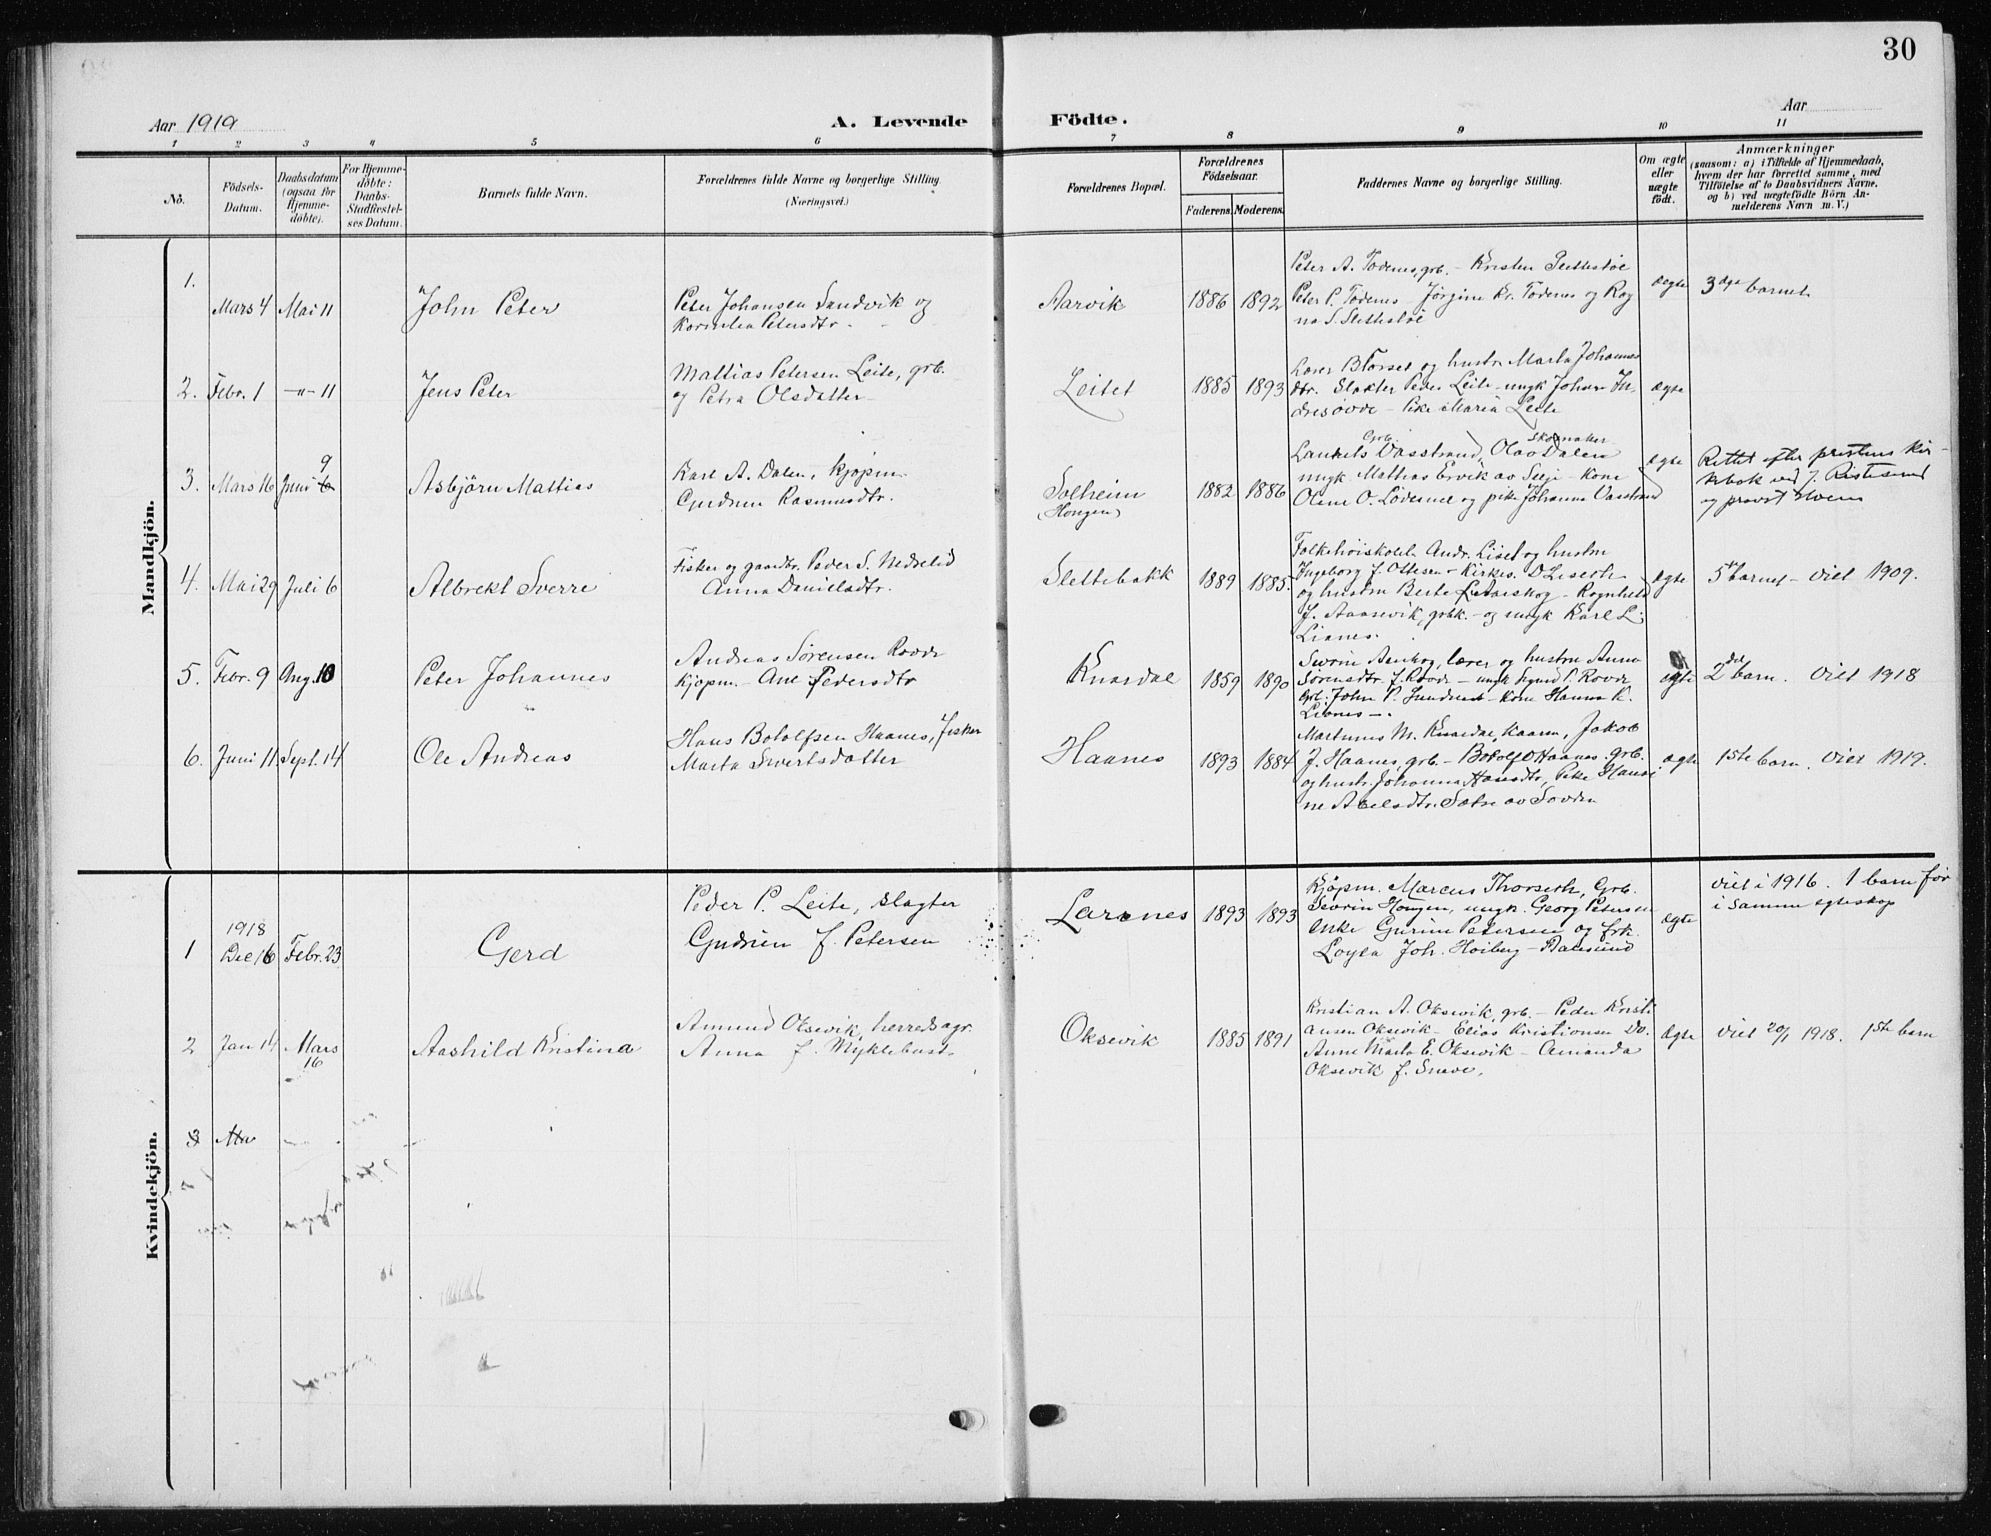 30
Aar 1919
A. Levende
Födte.
Aar
1 2 3 4 5 6 7 8 9 10 11
No.
Födsels-
Datum.
Daabsdatum
(ogsaa for
Hjemme-
döbte).
For Hjemme-
döbte:
Daabs-
Stadfæstel-
ses Datum.
Barnets fulde Navn.
Forældrenes fulde Navne og borgerlige Stilling.
(Næringsvei.)
Forældrenes Bopæl.
Forældrenes
Födselsaar.
Faderens. Moderens.
Faddernes Navne og borgerlige Stilling.
Om ægte
eller
uægte
födt.
Anmærkninger
(saasom: a) i Tilfælde af Hjemmedaab,
hvem der har forrettet samme, med
Tilföielse af to Daabsvidners Navne,
og b) ved uægtefödte Börn An-
melderens Navn m. V.)
Mandkjön.
1.
Mars 4 Mai 11
John Peter
Peter Johansen Sandvik og
Kornelia Petersdtr.
Aarvik
1886 1892
Peter A. Todenes, grb. - Kristen Slettestøl
Peter P. Todenes - Jørgine Kr. Todenes og Rag
na S. Slettestøl
ægte
3die barnet
2. Febr. 1 -"- 11
Jens Peter
Mattias Petersen Leite, grb.
og Petra Olsdatter
Leitet
1885 1893
Lærer B Torset og hustr. Marta Johannes
dtr. Slakter Peder Leite - ungk Johan In-
dresøvde - Pike Maria Leite
ægte
3. Mars 16 Juni 6
9
Asbjörn Mattias
Karl A. Dalen, kjøpm.
Gudrun Rasmusdtr.
Solheim
(Hongen)
1882 1886
Grb. Skomaker
Laurits Vasstrand, Olav Dalen
ungk Mathias Ervik av Selje - kone
Oline O. Lødesnel og pike Johanna Vasstrand
ægte
Rettet efter prestens kir-
kebok ved J. Ristesund
og provst
4. Mai 29 Juli 6
Albrekt Sverre
Fisker og gaardbr. Peder S. Nedrelid
Anna Danielsdtr.
Slettebakk
1889 1885.
Folkehöiskolel. Andr. Liset og hustru
Ingeborg f. Ottesen - Kirkes. D Liseth
og hustru Berte Liaskog - Ragnhild
J. Aarsevik, grbk. - og ungk Karl L
Lianes.
ægte
5te barnet - Viet 1909.
5. Febr. 9 Aug. 10
Peter Johannes
Andreas Sørensen Rovde
kjøpm. - Ane Pedersdtr
Knardal
1859 1890
Sevrin Aaskog, lærer og hustru Anna
Sørensdtr. f. Rovde - ungk Sigurd P. Rovde
Grb. John P. Sundnes - kone Hanna K.
Lianes -.
ægte
2det barn. Viet 1918
6. Juni 11. Sept. 14
Ole Andreas
Hans Botolfsen Haanes, fisker
Marta Sivertsdatter
Haanes
1893 1884
Martinus M. Knardal, kaarm, Jakob
J. Haanes, grb. - Botolf O Haanes. grb.
og hustr. Johanna Hansdtr, Pike Hansi
ne Axelsdtr. Sætre av Søvden
ægte
1ste barn. Viet 1919.
Kvindekjön.
1
1918
Dec 16 Febr. 23
Gerd
Peder P. Leite, slagter
Gudrun f. Petersen
Larsnes
1893 1893
Kjöpm. Marcus Thorseth, Grb.
Sevrin Hongen, ungk. Georg Petersen
enke Gurine Petersen og frk.
Loyla Joh. Hoiberg - Aalesund
ægte
viet i 1916. 1 barn för
i samme egteskap
2 Jan 14 Mars
16
Aashild Kristina
Amund Oksevik, herredsagr.
Anna f. Myklebust.
Oksevik
1885 1891
Kristian A. Oksevik, grb. - Peder Kristi
ansen Oksevik - Elias Kristiansen Do.
Anne Marta E. Oksevik - Amanda
Oksevik f. Sneve.
Ægte
viet 20/1 1918. 1ste barn
3